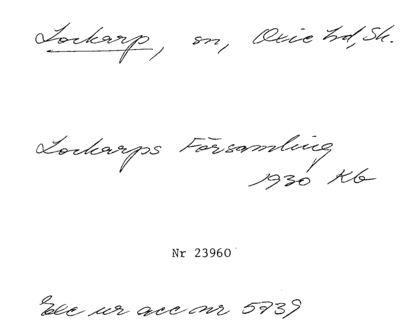 Lockarp, sn, Oxie hd, Sk.
Lockarps Församling
1930 Kb
Nr 23960
Exc ur acc nr 5739